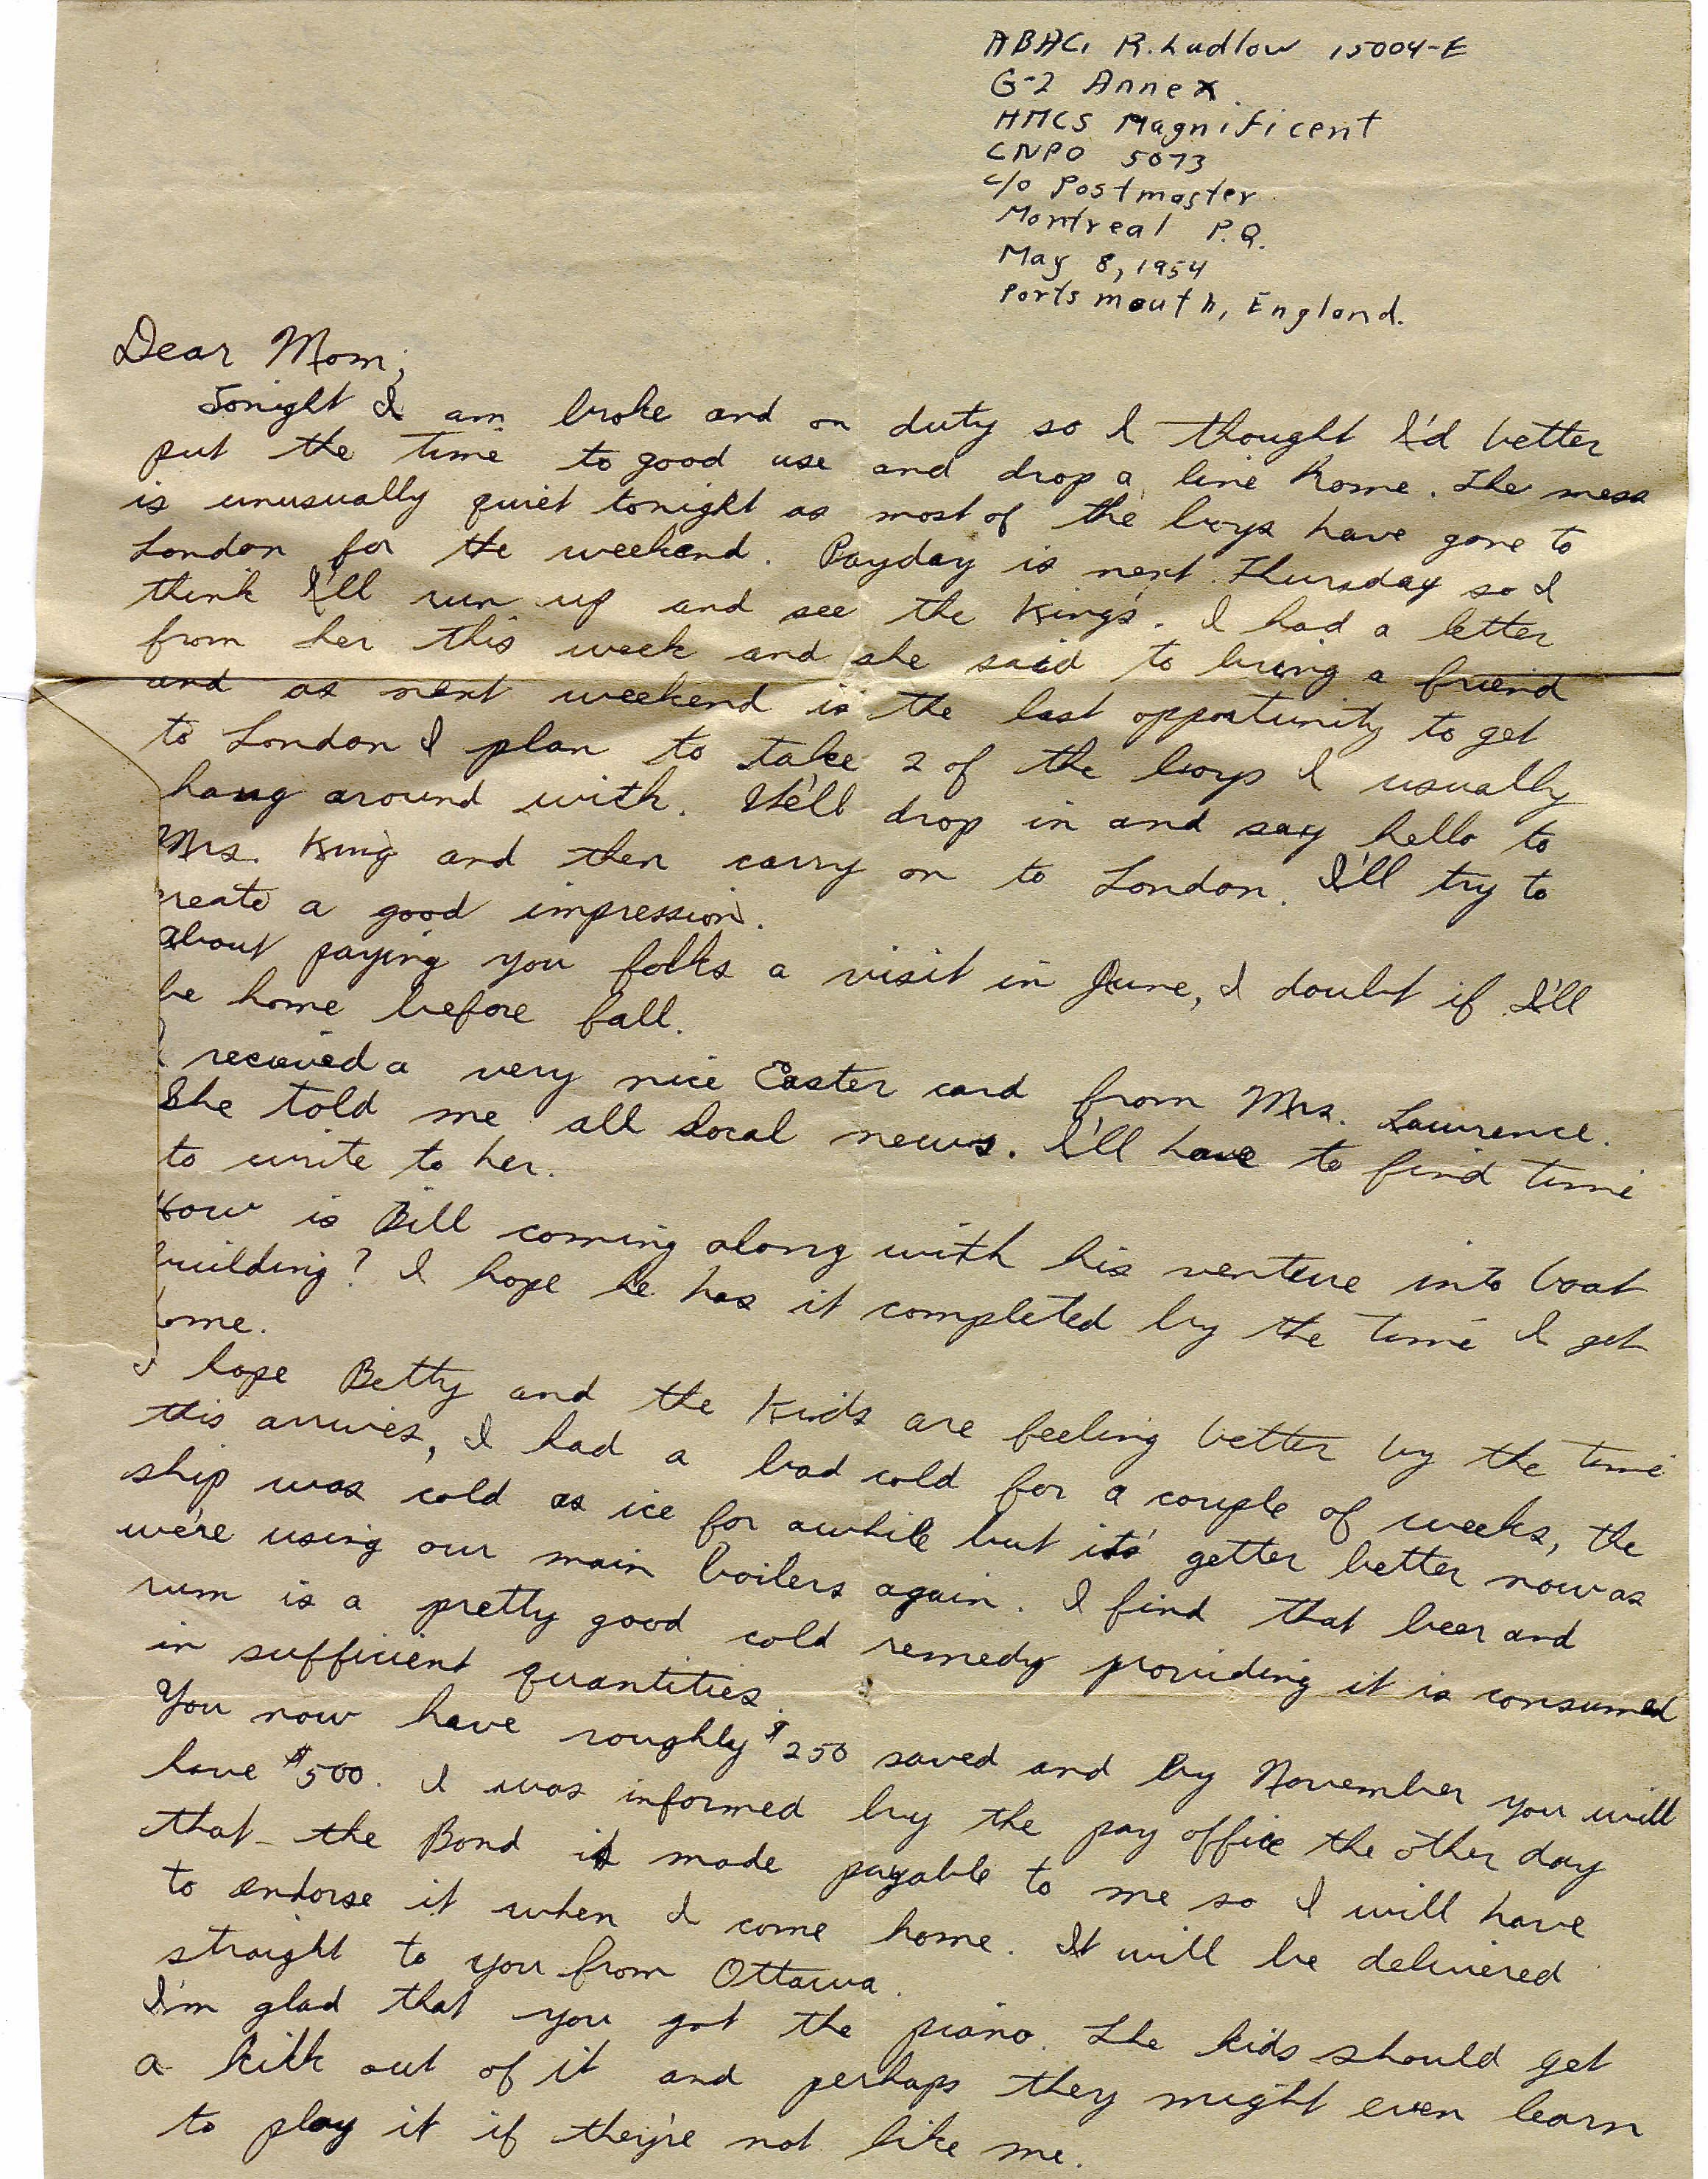 ABAC1 R. Ludlow 15004-E
G-2 Annex
HMCS Magnificent
CNPO 5073
c/o Postmaster
Montreal P.Q.
May 8, 1954
Portsmouth, England.
Dear Mom;
Tonight I am broke and on duty so I thought I'd better
put the time to good use and drop a line home. The mess
is unusually quiet tonight as most of the boys have gone to
London for the weekend. Payday is next Thursday so I
think I'll run up and see the King's. I had a letter
from her this week and she said to bring a friend
and as next weekend is the last opportunity to get
to London I plan to take 2 of the boys I usually
hang around with. We'll drop in and say hello to
Mrs. King and then carry on to London. I'll try to
reate a good impression.
About paying you folks a visit in June, I doubt if I'll
be home before fall.
I recieved a very nice Easter card from Mrs. Lawrence.
She told me all local news. I'll have to find time
to write to her.
How is Bill coming along with his venture into boat
building? I hope he has it completed by the time I get
ome.
I hope Betty and the kids are feeling better by the time
this arrives, I had a bad cold for a couple of weeks, the
ship was cold as ice for awhile but it's getter better now as
we're using our main boilers again. I find that beer and
rum is a pretty good cold remedy providing it is consumed
in sufficient quantities.
You now have roughly $250 saved and by November you will
have $500. I was informed by the pay office the other day
that the Bond is made payable to me so I will have
to endorse it when I come home. It will be delivered
straight to you from Ottawa.
I'm glad that you got the piano. The kids should get
a kick out of it and perhaps they might even learn
to play it if they're not like me.